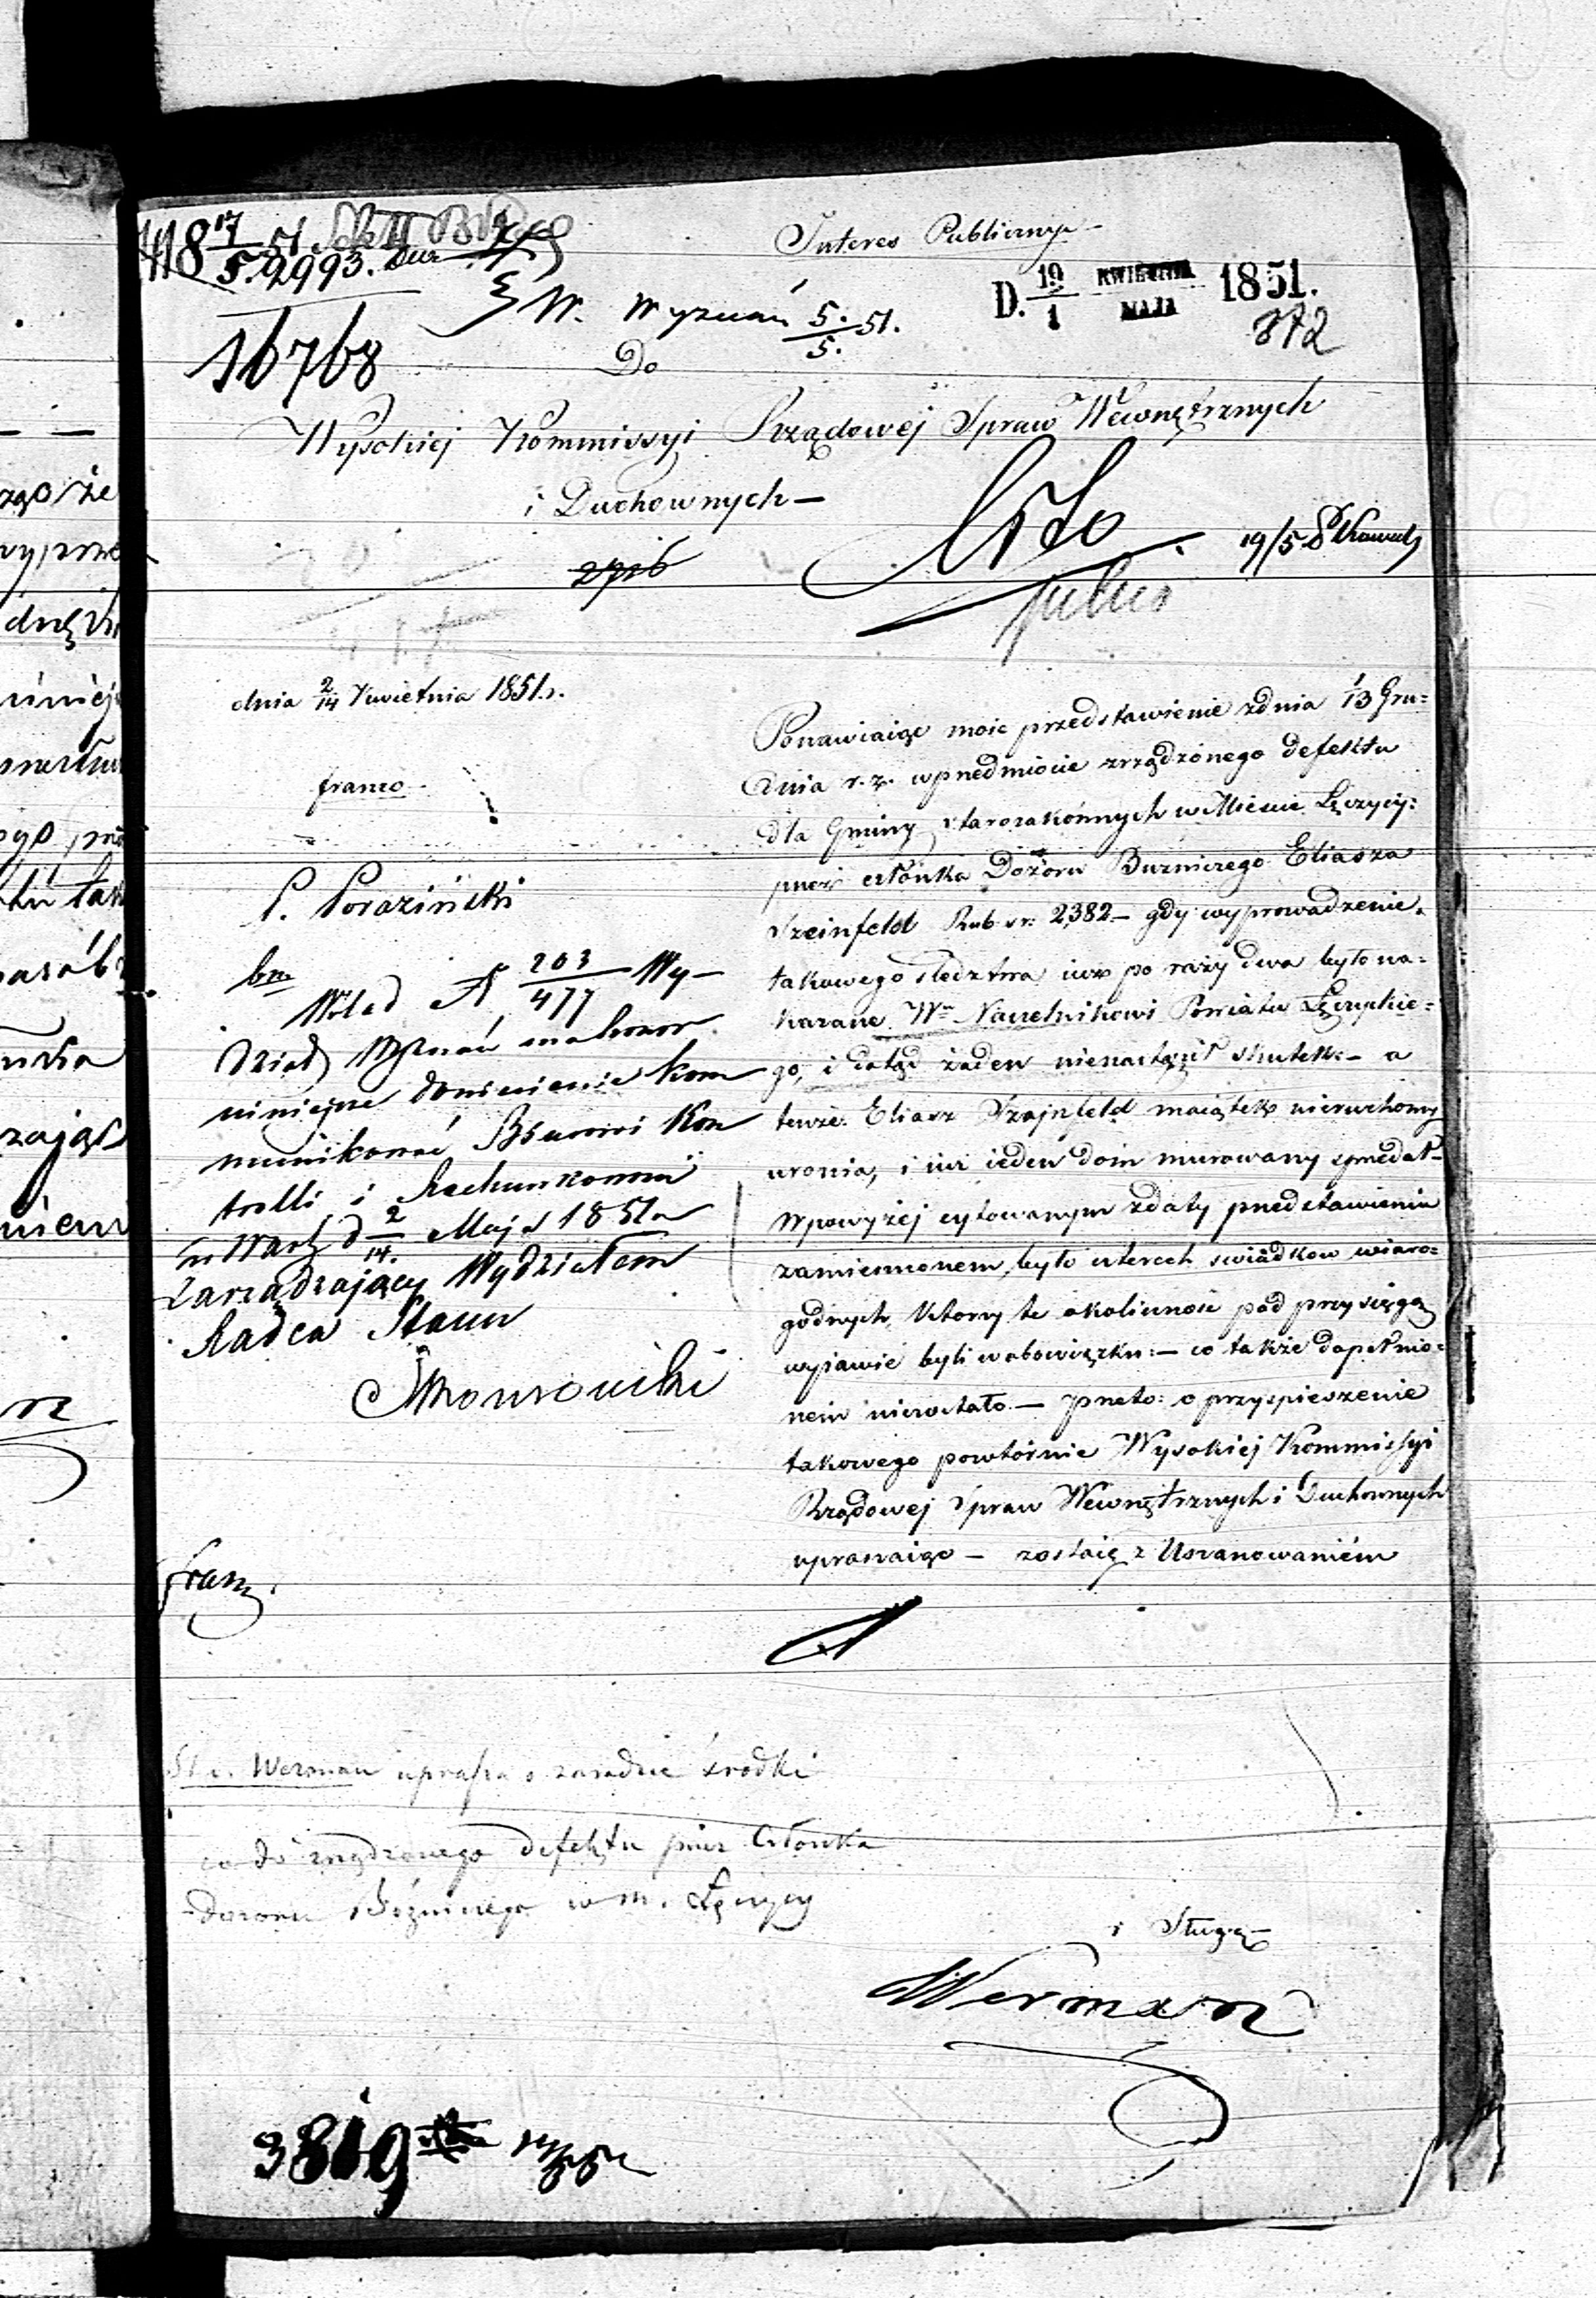 Interes Publiczny
D. 19/1 KWIETNIA MAJA 1851.
872
5. 2993.
W. Wyznań 5./5. 51.
16768
Do
Wysokiej Kommissyi Rządowej Spraw Wewnętrznych
i Duchownych —
2716
19/5
dnia 2/14 Kwietnia 1851 r.
franco
P. Poraziński
bm
Wsled N 203/477 Wy-
dział Wyznań ma honor
niniejsze doniesienie kom
munikować Biurowi Kon
trolli i Rachunkowości
w Warsz d 2/14. Maja 1851 r
Zarządzający Wydziałem
Radca Stanu
Ponawiaiąc moie przedstawienie zdnia 1/13 Gru=
dnia r. z. wprzedmiocie zrządzonego defektu
dla Gminy starozakonnych w Miescie Łęczycy:
przez członka Dozoru Buzniczego Eliasza
Szeinfeld Rub. sr. 2,382 — gdy wyprowadzenie
takowego sledztwa iuż po razy dwa było na=
kazane Wu Naczelnikowi Powiatu Łęczyckie=
go, i dotąd żaden nienastąpił skutek: — a
tenże Eliasz Szajnfeld maiątek nieruchomy
uronia, i iuż ieden dom murowany sprzedał —
Wpowyżej cytowanym zdaty przedstawieniu
zamiennonem, było czterech swiadkow wiaro=
godnych, ktorzy te okolicznosc pod przysięgą
wyiawic byli w obowiązku: — co także dopełnio=
nem niezostało — przeto: o przyspieszenie
takowego powtórnie Wysokiej Kommissyi
Rządowej Spraw Wewnętrznych i Duchownych
upraszaiąc — zostaię z Uszanowaniem
Franz.
St. z. Werman uprasza o zaradcze środki
co do zrządzonego defektu przez Członka
dozoru Bóźniczego w m. Łęczycy
i Sługą
Werman
3819